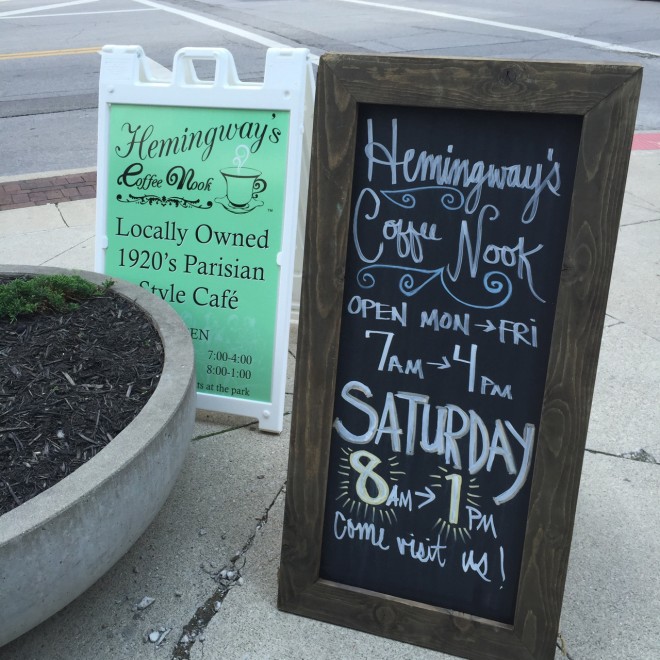 Hemingway's
Coffee Nook
TM
Locally Owned
1920's Parisian
Style Café
EN
7:00-4:00
8:00-1:00
ts at the park
Hemingway's
Coffee Nook
OPEN MON→FRI
7AM→4PM
SATURDAY
8AM→1PM
Come visit us!